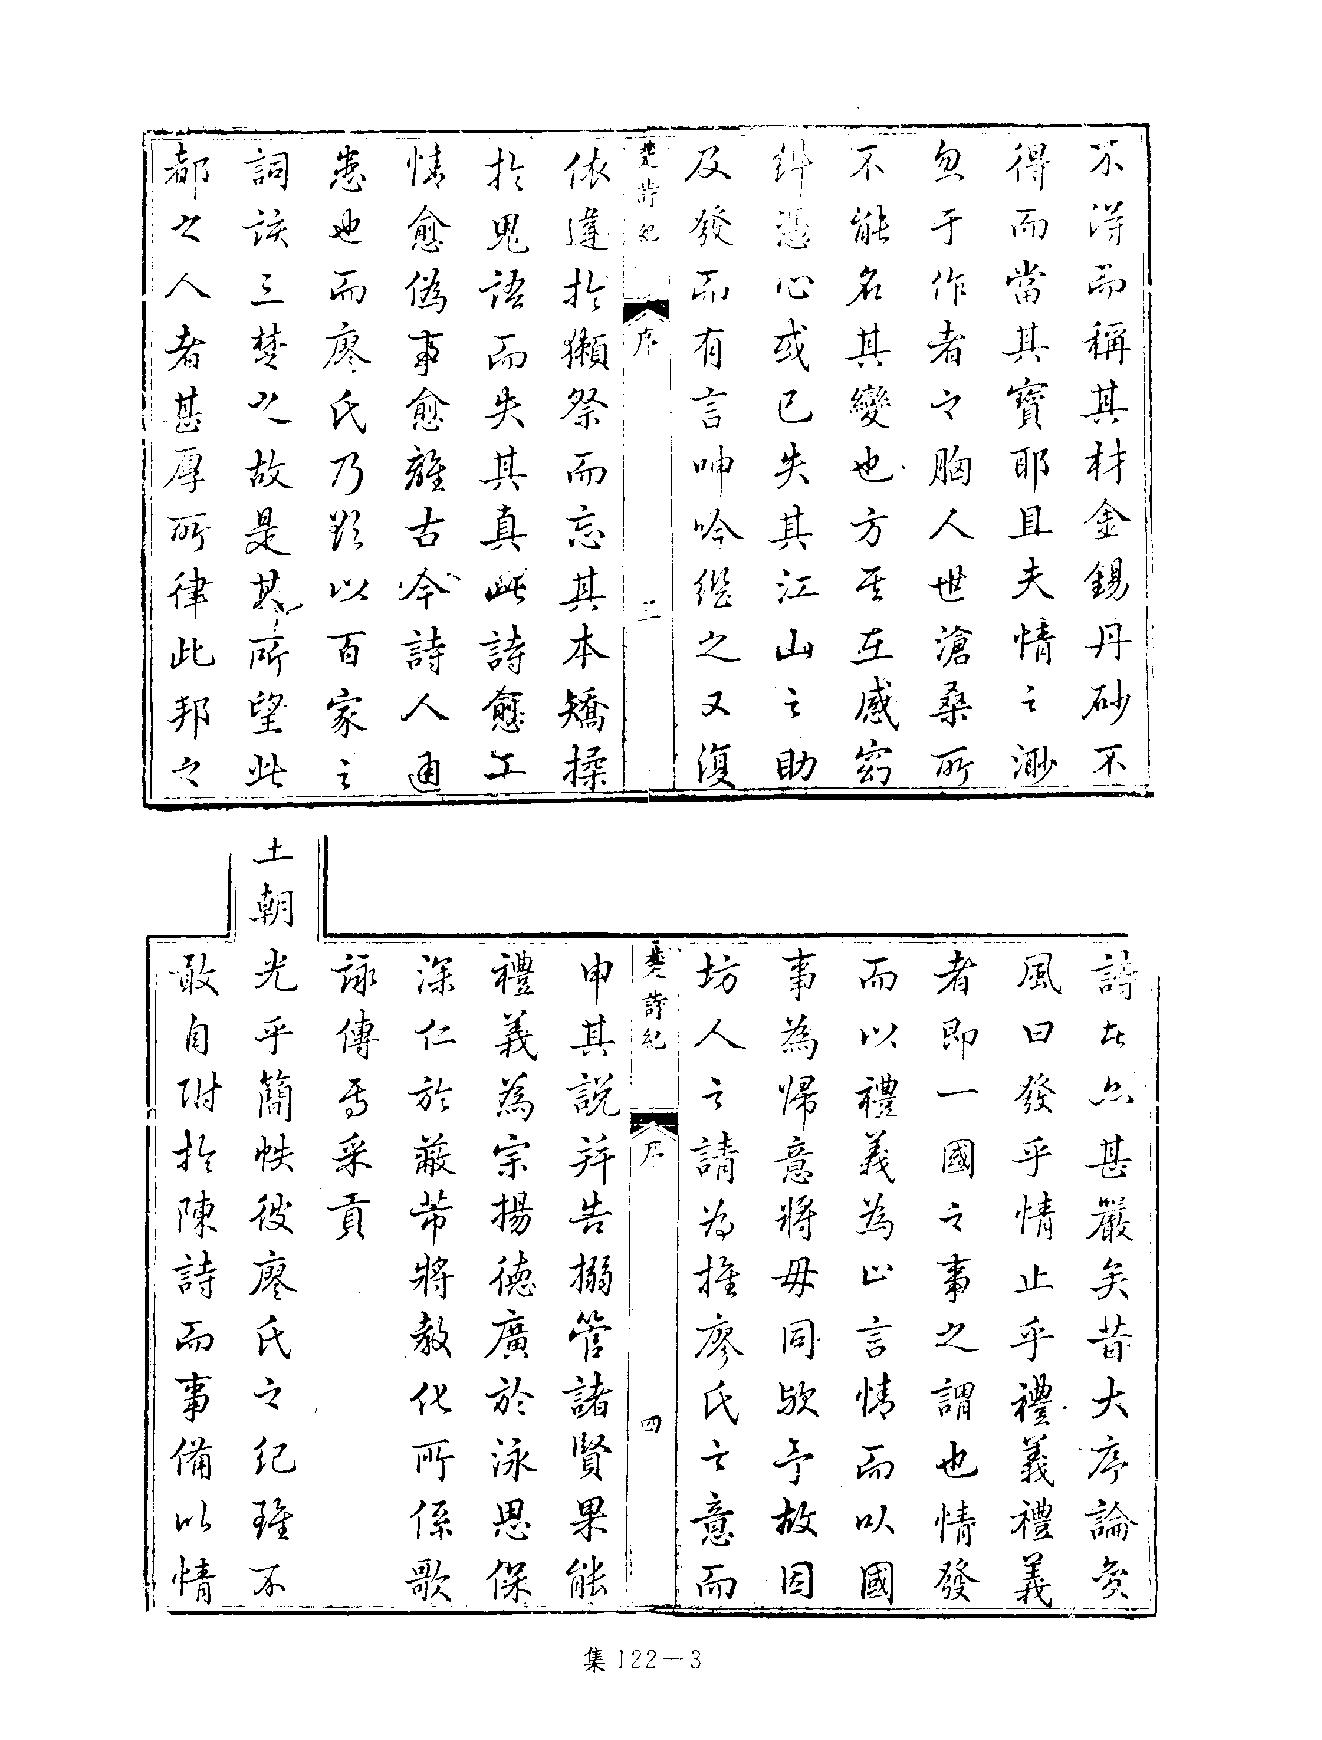 不得而稱其材金錫丹砂不
得而當其寶耶且夫情之渺
忽于作者之胸人世滄桑所
不能名其變也方其在感窮
糾憑心或已失其江山之助
及發而有言呻吟繼之又復
楚詩紀
序
三
依違於獺祭而忘其本矯揉
於鬼語而失其真此詩愈工
情愈偽事愈離古今詩人通
患也而廖氏乃欲以百家之
詞該三楚之故是其所望此
都之人者甚厚所律此邦之
詩者亦甚嚴矣昔大序論變
風曰發乎情止乎禮義禮義
者即一國之事之謂也情發
而以禮義為止言情而以國
事為歸意將毋同歟予故因
坊人之請為推廖氏之意而
楚詩紀
序
四
申其說并告搦管諸賢果能
禮義為宗揚德廣於泳思保
深仁於蔽芾將教化所係歌
詠傳焉采貢
土朝光乎簡帙彼廖氏之紀雖不
敢自附於陳詩而事備以情
集122—3